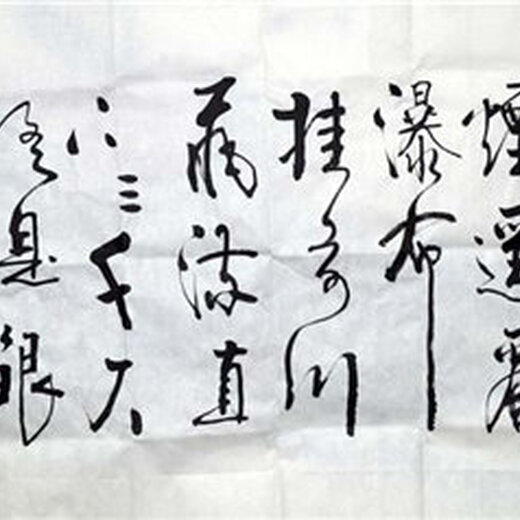 煙遥看
瀑布
挂前川
飛流直
下三千尺
疑是銀